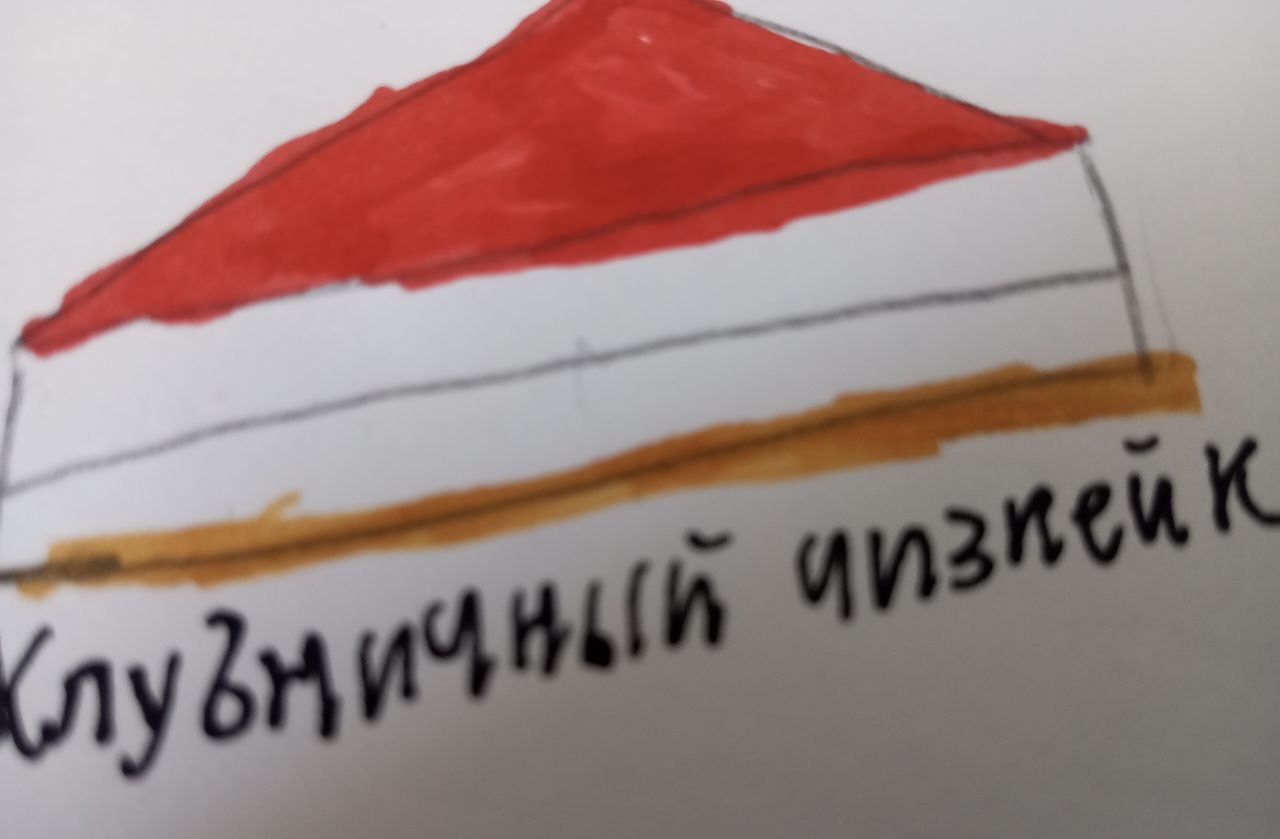 Клубничный чизкейк